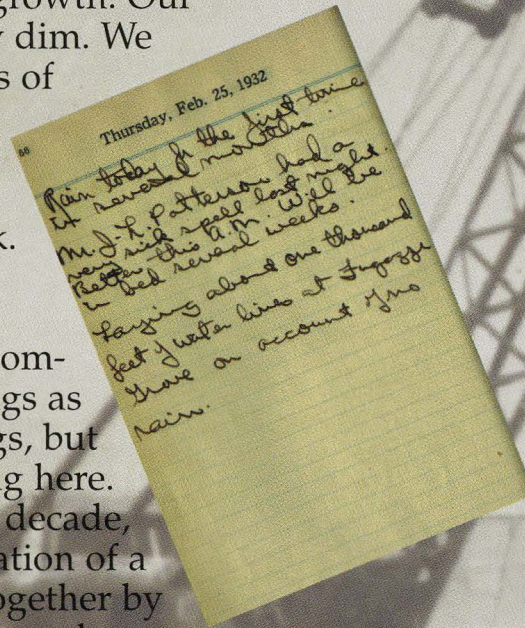 growth. Our
dim. We
s of
k.
om-
gs as
gs, but
g here.
decade,
ation of a
ogether by
66
Thursday, Feb. 25, 1932
Rain today for the first time
in several months.
Mr. J. L. Patterson had a
very sick spell last night.
Better this A.M. Will be
in bed several weeks.
Laying about one thousand
feet of water lines at Fugazzi
Grove on account of no
rain.